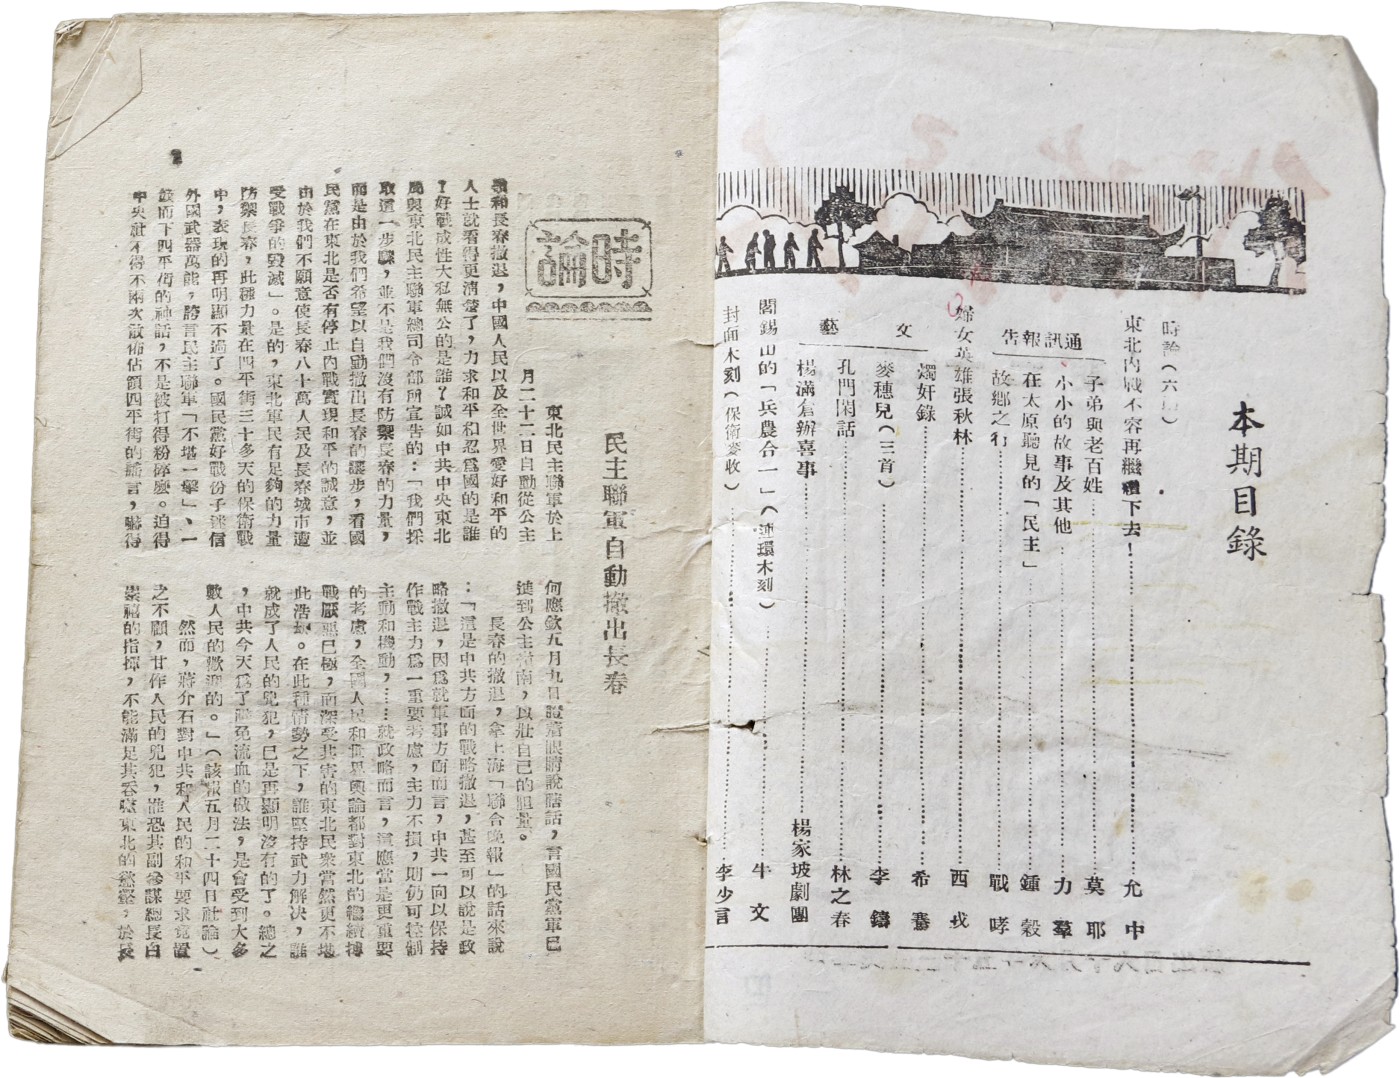 本期目錄
時論（六則）
東北內戰不容再繼續下去！……允中
通訊報告
子弟與老百姓……莫耶
小小的故事及其他……力羣
在太原聽見的「民主」……鍾毅
故鄉之行……戰哮
婦女英雄張秋林……西戎
文藝
燭奸錄……希騫
麥穗兒（三首）……李鑄
孔門閑話……林之春
楊滿倉辦喜事……楊家坡劇團
閻錫山的「兵農合一」（連環木刻）……牛文
封面木刻（保衛麥收）……李少言
時論
民主聯軍自動撤出長春
東北民主聯軍於上
月二十二日自動從公主
嶺和長春撤退，中國人民以及全世界愛好和平的
人士就看得更清楚了，力求和平和忍為國的是誰
？好戰成性大私無公的是誰？誠如中共中央東北
局與東北民主聯軍總司令部所宣告的：「我們採
取這一步驟，並不是我們沒有防禦長春的力量，
而是由於我們希望以自動撤出長春的讓步，看國
民黨在東北是否有停止內戰實現和平的誠意，並
由於我們不願意使長春八十萬人民及長春城市遭
受戰爭的毀滅」。是的，東北軍民有足夠的力量
防禦長春，此種力量在四平街三十多天的保衛戰
中，表現的再明顯不過了。國民黨好戰份子迷信
外國武器萬能，誇言民主聯軍「不堪一擊」、一
鼓而下四平街的神話，不是被打得粉碎麼。迫得
中央社不得不兩次散佈佔領四平街的謠言，嚇得
何應欽五月九日證着眼睛說瞎話，言國民黨軍已
進到公主嶺南，以壯自己的胆量。
長春的撤退，拿上海「聯合晚報」的話來說
：「這是中共方面的戰略撤退，甚至可以說是政
略撤退，因為就軍事方面而言，中共一向以保持
作戰主力為一重要考慮，主力不損，則仍可控制
主動和機動，……就政略而言，這應當是更重要
的考慮，全國人民和世界輿論都對東北的繼續搏
戰厭惡已極，而深受其害的東北民衆當然更不堪
此浩劫。在此種情勢之下，誰堅持武力解決，誰
就成了人民的兇犯，已是再顯明沒有的了。總之
，中共今天為了避免流血的做法，是會受到大多
數人民的歡迎的。」（該報五月二十四日社論）
然而，蔣介石對中共和人民的和平要求竟置
之不顧，甘作人民的兇犯，雖恐其副參謀總長白
崇禧的指揮，不能滿足其吞噬東北的慾壑，於長